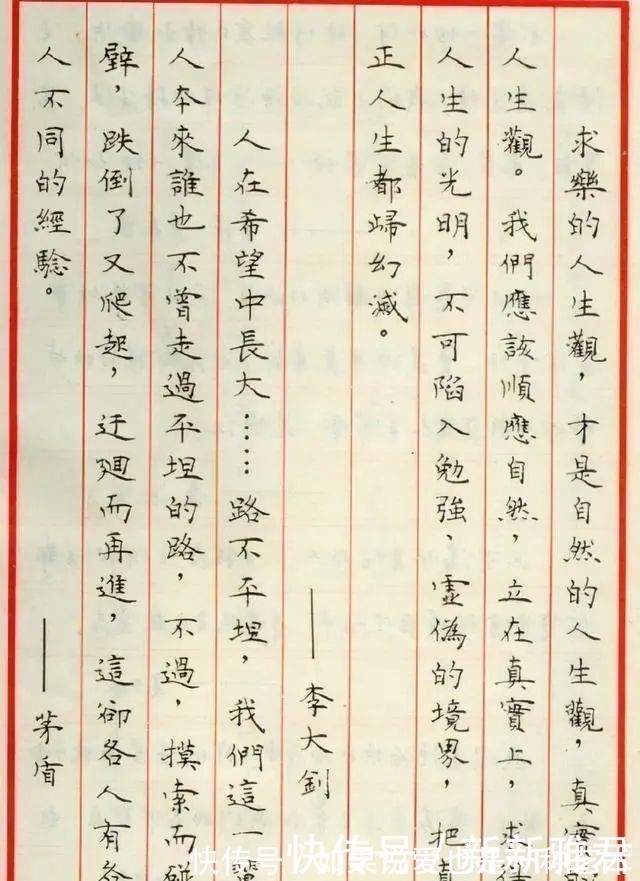 求樂的人生觀，才是自然的人生觀，真實的
人生觀。我們應該順應自然，立在真實上，求得
人生的光明，不可陷入勉強、虛偽的境界，把真
正人生都歸幻滅。
——李大釗
人在希望中長大……路不平坦，我們這一輩
人本來誰也不曾走過平坦的路，不過，摸索而碰
壁，跌倒了又爬起，迂迴而再進，這卻各人有各
人不同的經驗。
——茅盾
快传号